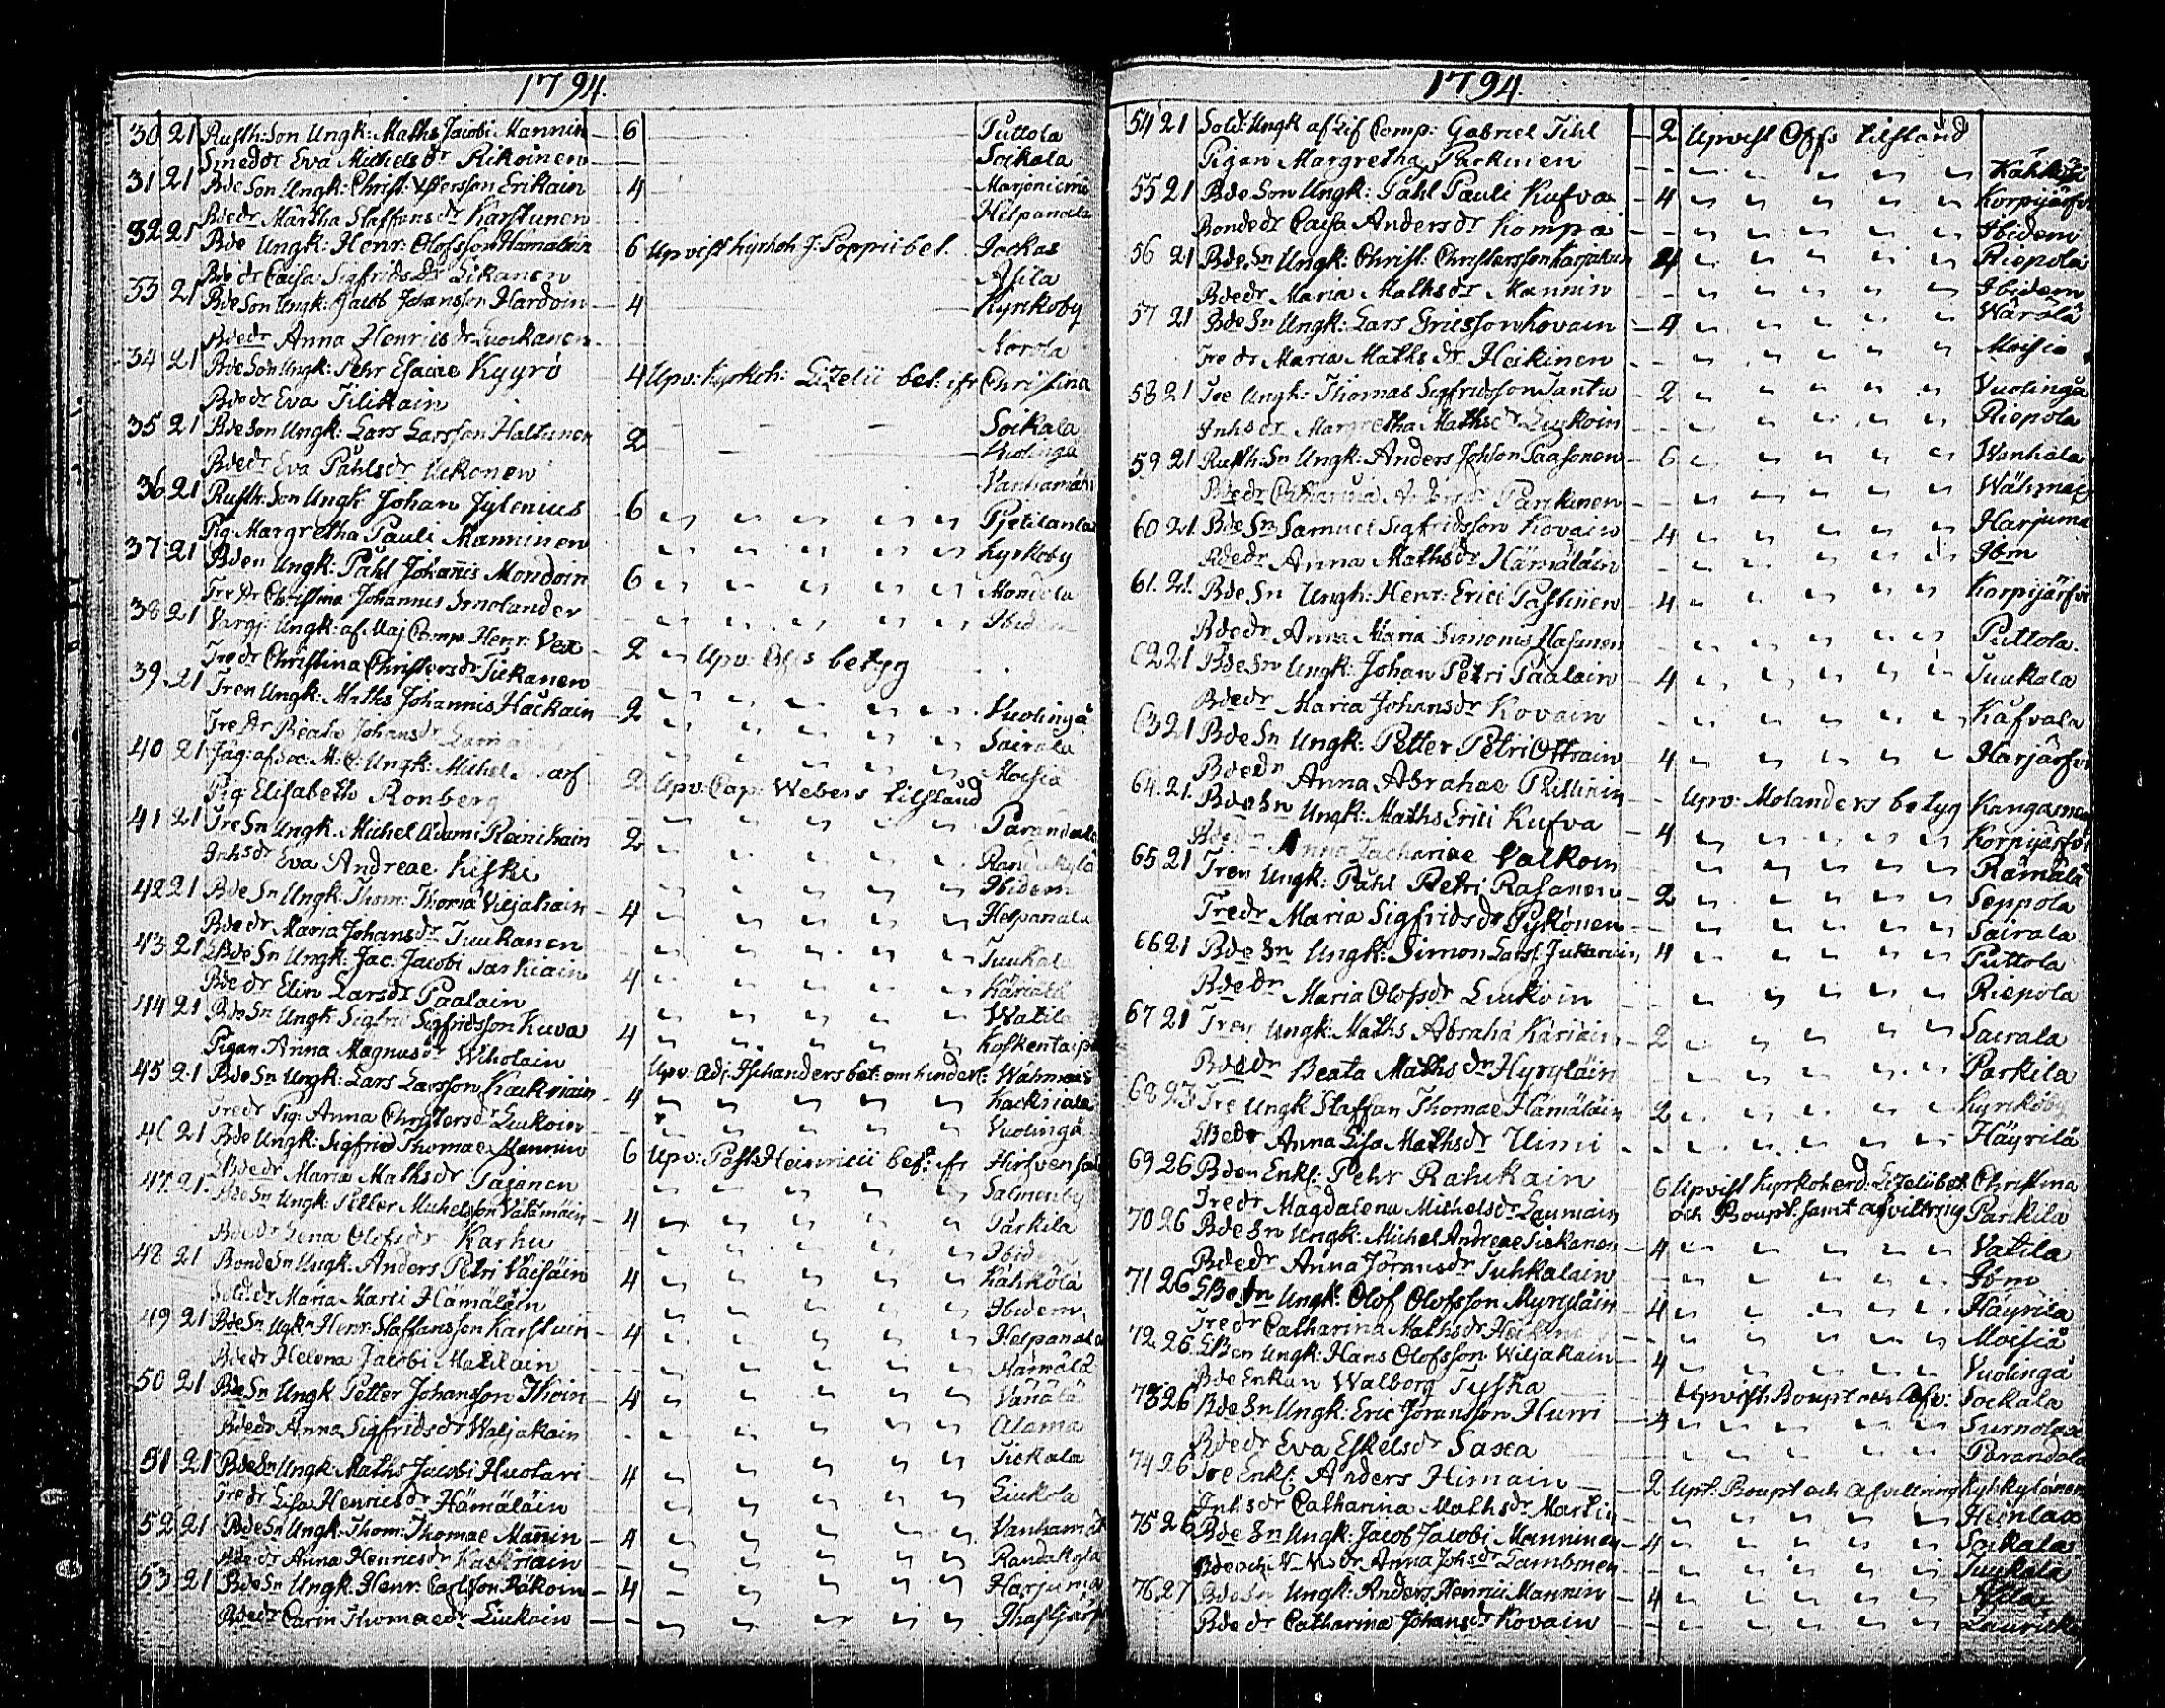 1794.
30 21 Rusth: Son Ungk: Maths Jacobi Mannin 6 Puttola
Smeddr Eva Michelsdr Rikoinen Soikala
31 21 Bde Son Ungk: Christ: Erikain 4 Marjoniemi
Bdedr Märtha Staffansdr Karstunen Helpanala
32 21 Bde Ungk: Henr: Olofsson Hämaläin 6 Upvist kyrkoh J: Poppii bet. Jockas
Bdedr Caisa Sigfridsdr Likanen Asila
33 21 Bde Son Ungk: Jacob Johansson Hardoin 4 Kyrkoby
Bdedr Anna Henricsdr Luockanen Norola
34 21 Bde Son Ungk: Pehr Esaiae Kyyrö 4 Upv: kyrkoh: Lizelii bet: ifr Christina
Bdedr Eva Tilikain
35 21 Bde Son Ungk: Lars Larsson Haltunen 2 Soikala
Bdedr Eva Påhlsdr Ukkonen Vuolinga
36 21 Rusth: Son Ungk Johan Jylenius 6 Pjetilanla
Pig. Margretha Pauli Manninen kyrkoby
37 21 Bden Ungk: Påhl Johannis Mondoin 6 Mondola
Tredr Christina Johannis Smolander Ibidem
38 21 Vargj: Ungk: af Maj Comp. Henr: Vex 2 Upv: Offs betyg
Tredr Christina Christersdr Tiekanen
39 21 Tren Ungk: Maths Johannis Häckäin 2 Vuolinga
Tredr Beata Johansdr Sairala
40 21 Jäg: af Sec. M: C: Ungk: Michel 2 Upv: Cap: Webers tilstånd Moisia
Pig Elisabeth Ronberg
41 21 Tre Sn Ungk. Michel Adami Rainikain 2 Parandala
Inhsdr Eva Andreae Kiski Randakylä
42 21 Bde Sn Ungk: Thom: Thomae Viljakain 4 Ibidem
Bdedr Maria Johansdr Tuukanen Helpanala
43 21 Bde Sn Ungk: Jac: Jacobi Sarkiain 4 Tuukala
Bdedr Elin Larsdr Paalain
44 21 Bde Sn Ungk Sigfrid Sigfridsson Kuva 4 Watila
Pigan Anna Magnusdr Wiholain Koskentaip
45 21 Bde Sn Ungk: Lars Larsson Kackriain 4 Upv: Adj: Ischanders bet: om hinderl: Wähmais
Tredr Pig: Anna Christersdr Liukoin Kackriala
46 21 Bde Ungk: Sigfrid Thomae Mannin 6 Upv: Past: Heinricii bet: ifr Hirfvensal
Bdedr Maria Mathsdr Pajanen Salmenby
47 21 Bde Sn Ungk: Petter Michelsson Välämäin 4 Parkila
Bdedr Lena Olofsdr Karhu
48 21 Bonde Sn Ungk: Anders Petri Väisäin 4 Kähkölä
Maria Marci Hämäläin Ibidem
49 21 Bde Sn Ugkn Henr: Staffansson Karstuin 4 Helpanala
Bdedr Helena Jacobi Matilain Hämälä
50 21 Bde Sn Ungk Petter Johansson Ihoin 4 Vanälä
Bdedr Anna Sigfridsdr Waljakain Alama
51 21 Bde Sn Ungk: Maths Jacobi Huotari 4 Tiekala
Tredr Lisa Henricsdr Hämäläin Liukola
52 21 Bde Sn Ungk: Thom: Thomae Mannin 4 Vanhamäk
Bdedr Anna Henricsdr Kackriain Randakylä
53 21 Bde Sn Ungk: Henr: Carlsson Häkoin 4 Harjuma
Bdedr Carin Thomaedr Liukoin
1794
54 21 Sold: Ungk af Lif Comp: Gabriel Tihl 2 Upvist Offs tilstånd
Pigan Margretha Parkinen
55 21 Bde Son Ungk: Påhl Pauli Kufva 4 Korpijärfvi
Bondedr Caisa Andersdr Kompa Ibidem
56 21 Bde Sn Ungk: Christ: Christersson Karjakain 4 Riepola
Bdedr Maria Mathsdr Mannin Ibidem
57 21 Bde Sn Ungk: Lars Ericsson Kovain 4 Wärälä
Tredr Maria Mathsdr Heikinen Moisia
58 21 Tre Ungk: Thomas Sigfridsson Tantu 2 Vuolinga
Inhsdr Margretha Mathsdr Liukoin Riepola
59 21 Rusth: Sn Ungk: Anders Johson Paasonen 6 Wanhala
Bdedr Catharina Andersdr Parkinen Wähmais
60 21 Bde Sn Samuel Sigfridsson Kovain 4 Harjuma
Bdedr Anna Mathsdr Hämäläin Ibm
61 21 Bde Sn Ungk: Henr: Erici Pastinen 4 Korpijärfvi
Bdedr Anna Maria Simonis Hasunen Puttola
62 21 Bde Sn Ungk: Johan Petri Paalain 4 Tuukala
Bdedr Maria Johansdr Kovain Käfvala
63 21 Bde Sn Ungk: Petter Petri Ottrain 4 Harjärfvi
Bdedr Anna Abrahae Pullinin Upv: Molanders betyg Kangasme
64 21 Bde Sn Ungk: Maths Erici Kufva 4 Korpijärfvi
Bdedr Anna Zachariae Valkoin Rämälä
65 21 Tren Ungk: Påhl Petri Rasanen 2 Seppola
Tredr Maria Sigfridsdr Pykönen Sairala
66 21 Bde Sn Ungk: Simon Lars: Jukarain 4 Puttola
Bdedr Maria Olofsdr Liukoin Riepola
67 21 Tren Ungk: Maths Abrahā Käriäin 2 Sairala
Bdedr Beata Mathsdr Hyryläin Parkila
68 23 Tre Ungk Staffan Thomae Hämäläin 2 kyrkoby
Bdedr Anna Lisa Mathsdr Ulmi Häyrilä
69 26 Bden Enkl: Pehr Rahikain 6 Upvist kyrkoherd: Lizelii bet: Christina
Tredr Magdalena Michelsdr Launiain och Boupt: samt afvittring Parkila
70 26 Bde Sn Ungk: Michel Andreae Siekanen 4 Vatila
Bdedr Anna Jöransdr Juhkalain Ibm
71 26 Bde Sn Ungk: Olof Olofsson Myryläin 4 Häyrila
Tredr Catharina Mathsdr Moisiä
72 26 Bden Ungk: Hans Olofsson Wiljakain 4 Vuolinga
Bde Enkan Walborg Tyska Upvist Boupt och Afv: Sockala
73 26 Bde Sn Ungk: Eric Jöransson Hurri 4 Surnolax
Bdedr Eva Eskelsdr Saxa Parandala
74 26 Tre Enkl: Anders Himain 2 Upt: Boupt och Afvittring Kyhkylänen
Inhsdr Catharina Mathsdr Martin Heinlax
75 26 Bde Sn Ungk: Jacob Jacobi Manninen 4 Soikala
Anna Johsdr Lambinen Tuukala
76 27 Bde Sn Ungk: Anders Henrici Mannin 4 Asila
Bdedr Catharina Johansdr Kovain